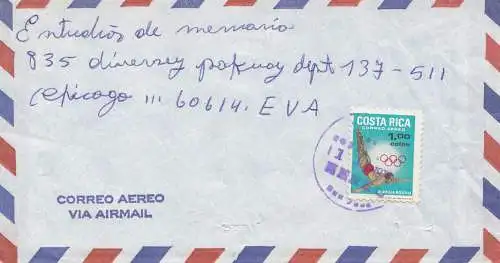 Estudios de memorio
835 diversey pakway dept 137-511
chicago ill 60614. E V A
COSTA RICA
CORREO AEREO
1.00
colon
CORREO AEREO
VIA AIRMAIL